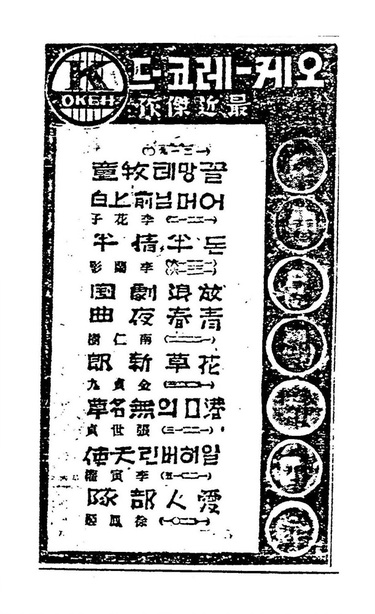 오케-레코-드
K
OKEH
最近傑作
꼴망태牧童
어머님前上白
李花子
돈半情半
李蘭影
放浪劇国
青春夜曲
南仁樹
花草新郎
金貞九
港口의無名草
張世貞
일허버린天使
李寅權
愛人部隊
徐鳳姬